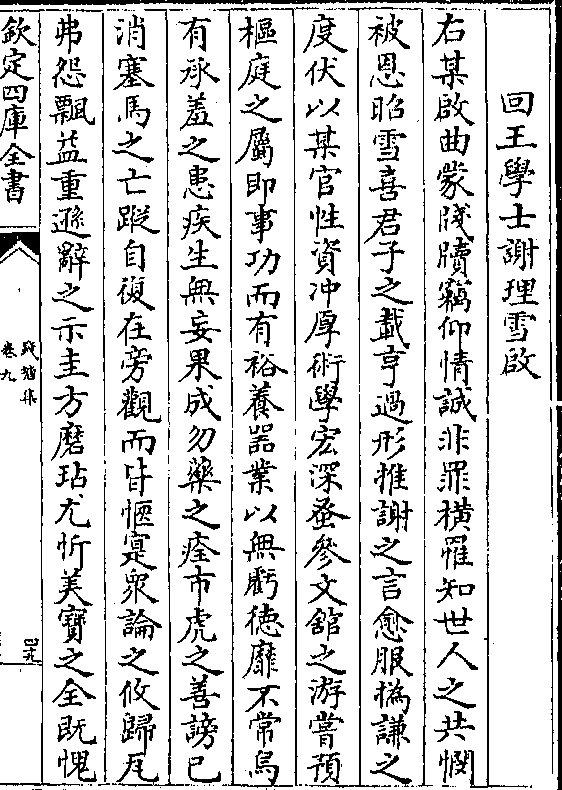 回王學士謝理雪啟
右某啟曲蒙牋牘竊仰情誠非罪橫罹知世人之共憫
被恩昭雪喜君子之載亨過形推謝之言愈服撝謙之
度伏以某官性資冲厚術學宏深蚤參文館之游嘗預
樞庭之屬即事功而有裕養器業以無虧德靡不常焉
有承羞之患疾生無妄果成勿藥之痊市虎之善謗已
消塞馬之亡蹤自復在旁觀而皆愜寔衆論之攸歸瓦
弗怨飄益重遜辭之示圭方磨玷尤忻美寶之全既愧
欽定四庫全書
卷九